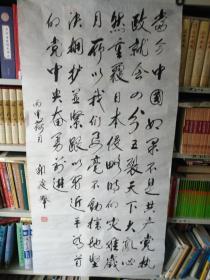 当今中国如果不是共产党执
政就会四分五裂天下大乱必
然重覆日本侵略时的灾难岁
月所以我们要毫不动摇地坚
决拥护並紧跟以习近平为首
的党中央奋勇前进
丙申荷月